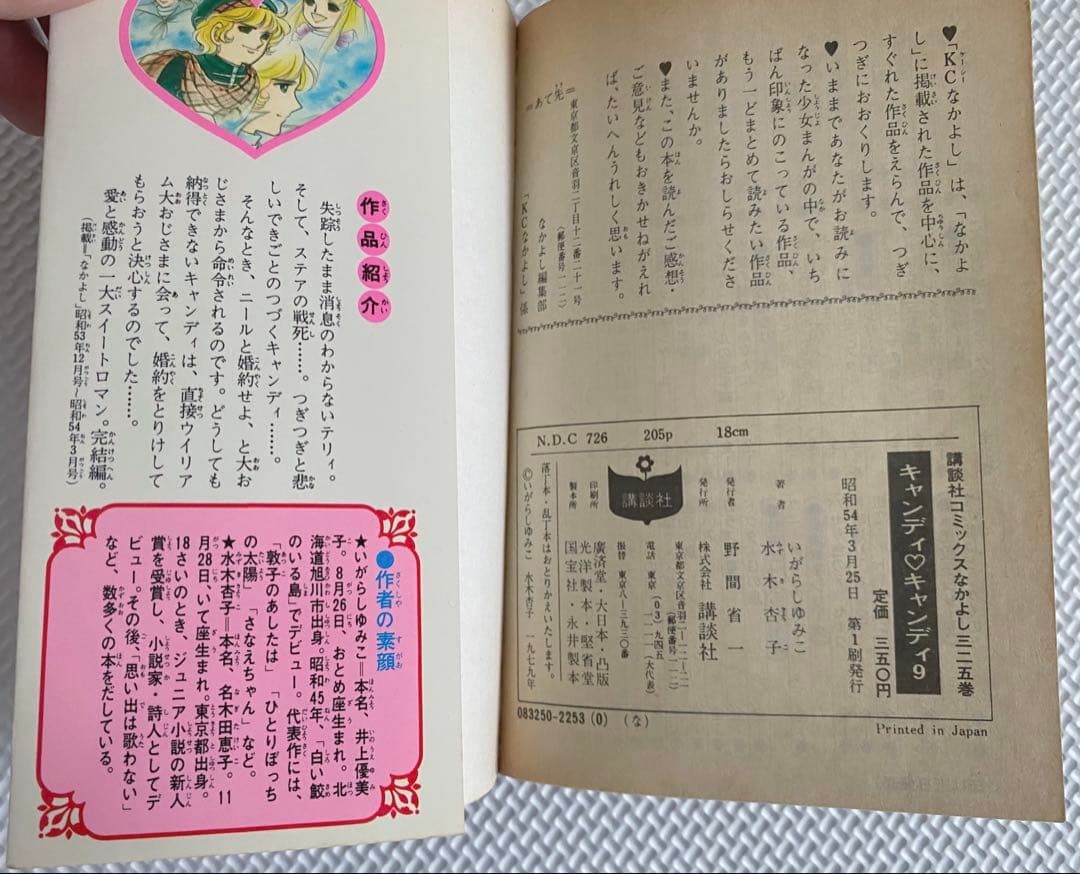 ♥「KCなかよし」は、「なかよ
し」に掲載された作品を中心に、
すぐれた作品をえらんで、つぎ
つぎにおおくりします。
♥いままであなたがお読みに
なった少女まんがの中で、いち
ばん印象にのこっている作品、
もう一どまとめて読みたい作品
がありましたらおしらせくださ
いませんか。
♥また、この本を読んだご感想・
ご意見などもおきかせねがえれ
ば、たいへんうれしく思います。
＝あて先＝
東京都文京区音羽二丁目十二番二十一号
(郵便番号一一二)
なかよし編集部
「KCなかよし」係
N.D.C 726 205p 18cm
講談社コミックスなかよし三二五巻
キャンディ♡キャンディ9
昭和54年3月25日 第1刷発行
定価 三五〇円
著者 いがらしゆみこ
水木杏子
発行者 野間省一
発行所 株式会社 講談社
東京都文京区音羽二-一二-二一
(郵便番号一一二)
電話 東京(03)九四五-一一一一(大代表)
振替 東京八-三九三〇番
講談社
印刷所 廣済堂・大日本・凸版
製本所 光洋製本・堅省堂
国宝社・永井製本
落丁本・乱丁本はおとりかえいたします。
©いがらしゆみこ 水木杏子 一九七九年
083250-2253(0) (な)
Printed in Japan
作品紹介
失踪したまま消息のわからないテリィ。
そして、ステアの戦死……。つぎつぎと悲
しいできごとのつづくキャンディ……。
そんなとき、ニールと婚約せよ、と大お
じさまから命令されるのです。どうしても
納得できないキャンディは、直接ウイリア
ム大おじさまに会って、婚約をとりけして
もらおうと決心するのでした……。
愛と感動の一大スイートロマン。完結編。
(掲載＝「なかよし」昭和53年12月号～昭和54年3月号)
●作者の素顔
★いがらしゆみこ＝本名、井上優美
子。8月26日、おとめ座生まれ。北
海道旭川市出身。昭和45年、「白い鮫
のいる島」でデビュー。代表作には、
「敦子のあしたは」「ひとりぼっち
の太陽」「さなえちゃん」など。
★水木杏子＝本名、名木田恵子。11
月28日、いて座生まれ。東京都出身。
18さいのとき、ジュニア小説の新人
賞を受賞し、小説家・詩人としてデ
ビュー。その後、「思い出は歌わない」
など、数多くの本をだしている。